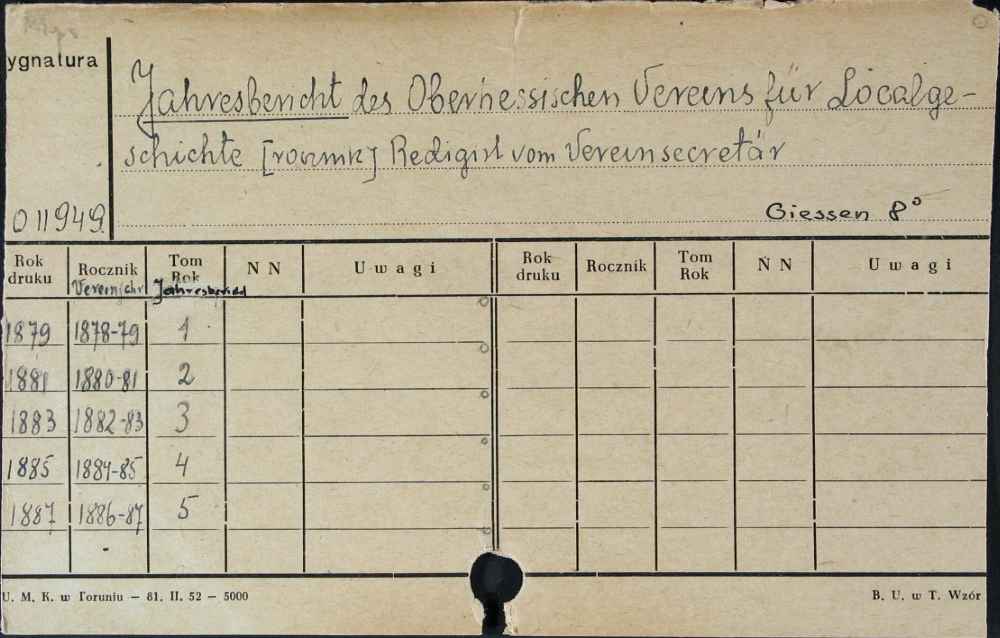 ygnatura
Jahresbericht des Oberhessischen Vereins für Localge-
schichte [rocznik] Redigirt vom Vereinsecretär
011949.
Giessen 8°
Rok druku Rocznik Tom Rok N N Uwagi Rok druku Rocznik Tom Rok N N Uwagi
Vereinjahr Jahresbericht
1879 1878-79 1
1881 1880-81 2
1883 1882-83 3
1885 1884-85 4
1887 1886-87 5
U. M. K. w Toruniu — 81. II. 52 — 5000
B. U. w T. Wzór